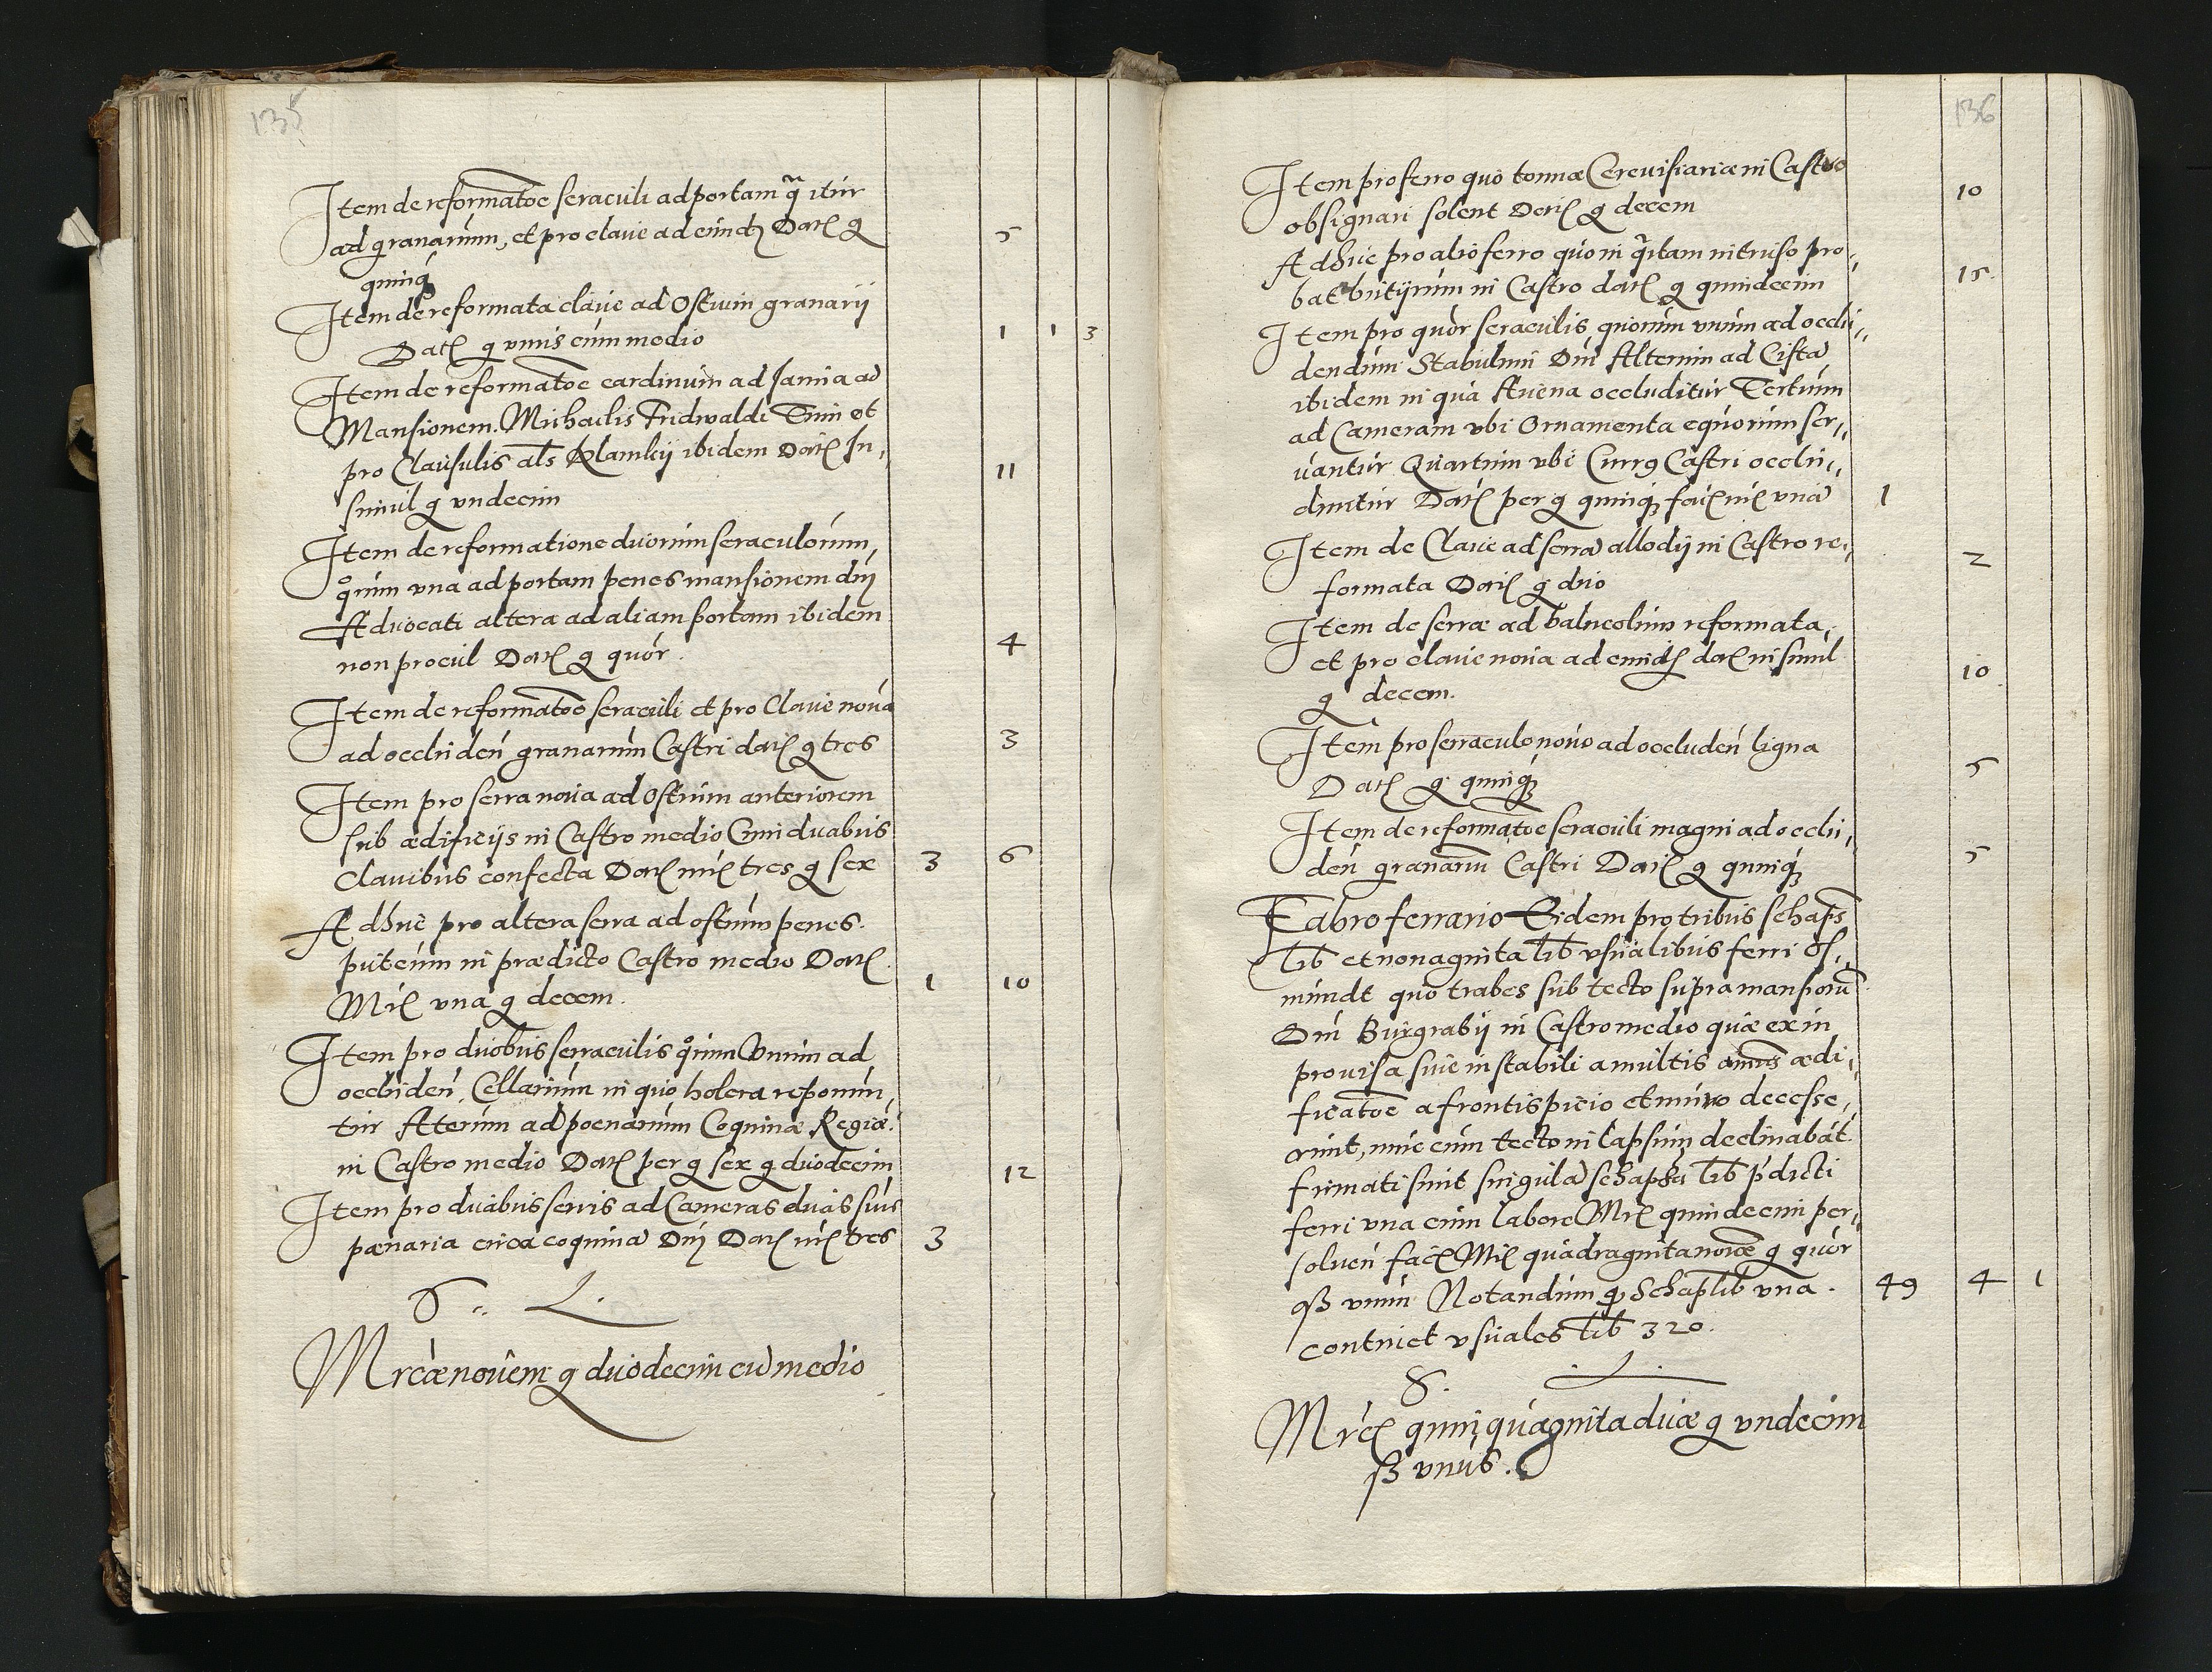 135
Item de reformatoe seraculi ad portam q̃ itur
ad granarium, et pro clave ad eundē Datɩ g
quinq̨
5
Item de reformata clave ad Ostium granarij
Datɩ g unus cum medio
1 1 3
Item de reformatoe cardinum ad Januā ad
Mansionem Michaelis Fridwaldi Tum et
pro Clausulis als Klamky ibidem Datɩ In,,
simul g undecim
11
Item de reformatione duorum seraculorum,
qͦrum una ad portam penes mansionem dnj
Advocati altera ad aliam portam ibidem
non procul Datɩ g quor
4
Item de reformatoe seraculi et pro Clave nova
ad occluden̄ granarium Castri datɩ g tres
3
Item pro serra nova ad Ostium anteriorem
sub ædificijs in Castro medio Cum duabus
clavibus confecta Datɩ mrɩ tres g sex
3 6
Adhuc pro altera serra ad ostium penes
puteum in prædicto Castro medio Datɩ
Mrɩ una g decem.
1 10
Item pro duobus serraculis qͦrum Unum ad
occluden̄ Cellarium in quo holera reponun,,
tur Alterum ad poenarium Coquinæ Regiæ
in Castro medio Datɩ per g sex g duodecim
12
Item pro duabus serris ad Cameras duas sive
pænaria circa coquinā Dnj Datɩ mrɩ tres
3
S.. L.
Mrcæ novem g duodecim cū medio
136
Item pro ferro quo tonnæ Cerevisiariæ in Castro
obsignari solent Datɩ g decem
10
Adhuc pro alio ferro quo in q̃litam intruso pro,,
bat butijrum in Castro datɩ g quindecim
15
Item pro quor seraculis quorum unum ad occlu,,
dendum Stabulum Dni Alterum ad Cistā
ibidem in qua Avena occluditur Tertium
ad Cameram ubi Ornamenta equorum ser,,
vantur Quartum ubi Currꝯ Castri occlu,,
duntur Datɩ per g quinq̨ faciɩ mrɩ unā
1
Item de Clave ad serrā allodij in Castro re,,
formata Datɩ g duo
2
Item de serræ ad balneolum reformata,
et pro clave nova ad eandē datɩ in simul
g decem.
10
Item pro serraculo novo ad occluden̄ ligna
Datɩ g quinq̨
5
Item de reformatoe seraculi magni ad occlu,,
den̄ granarium Castri Datɩ g quinq̨
5
Fabro ferrario Eidem pro tribus schaps
lib et nonaginta lib usualibus ferri Os,,
mundt quo trabes sub tecto supra mansionē
Dni Burgrabij in Castro medio quæ ex in
provisa sive instabili a multis annis ædi,,
ficatoe a frontispicio et muro decesse,,
runt, nunc cum tecto in lapsum declinabāt
firmati sunt singulā schaps lib p̄dicti
ferri una cum labore Mrɩ quindecim per,,
solven̄ facɩ Mrɩ quadraginta novē g quor
ɋß unum Notandum ꝙ Schaps lib una
49 4 1
continet usuales lib 320.
S. L.
Mrcɩ quinquaginta duæ g undecim
ß unus.